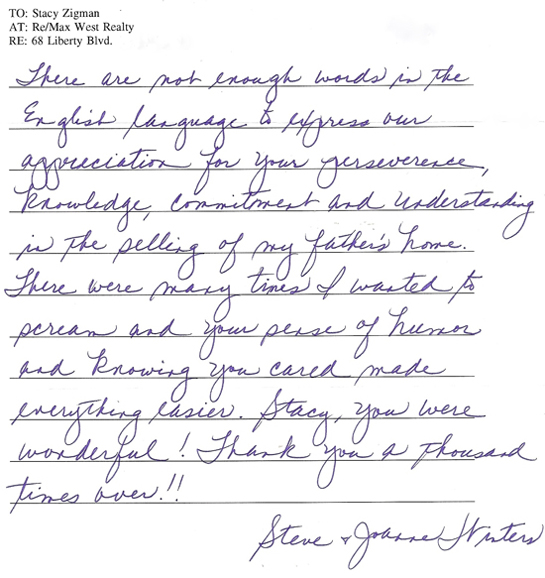 TO: Stacy Zigman
AT: Re/Max West Realty
RE: 68 Liberty Blvd.
There are not enough words in the
English language to express our
appreciation for your perseverence,
knowledge, commitment and understanding
in the selling of my father's home.
There were many times I wanted to
scream and your sense of humor
and knowing you cared made
everything easier. Stacy, you were
wonderful! Thank you a thousand
times over!!
Steve & Joanne Winters